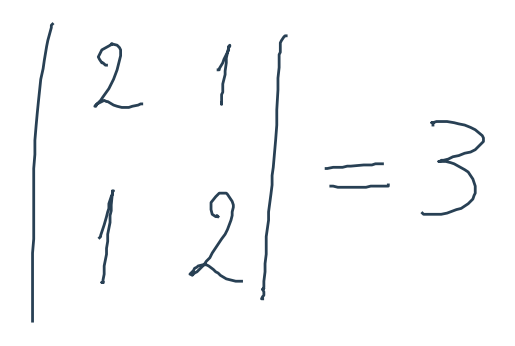 | 2 1 |
| 1 2 | = 3